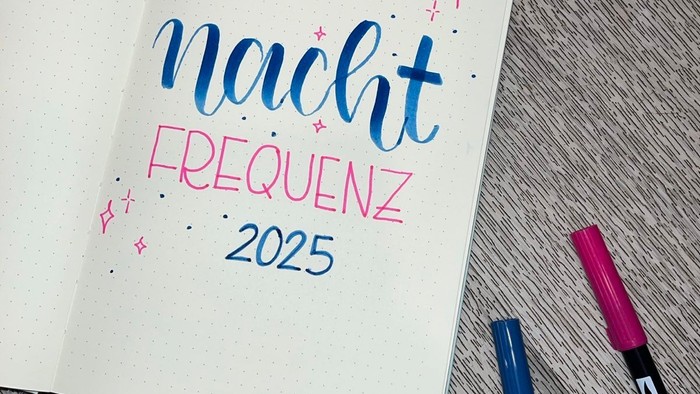 nacht
FREQUENZ
2025